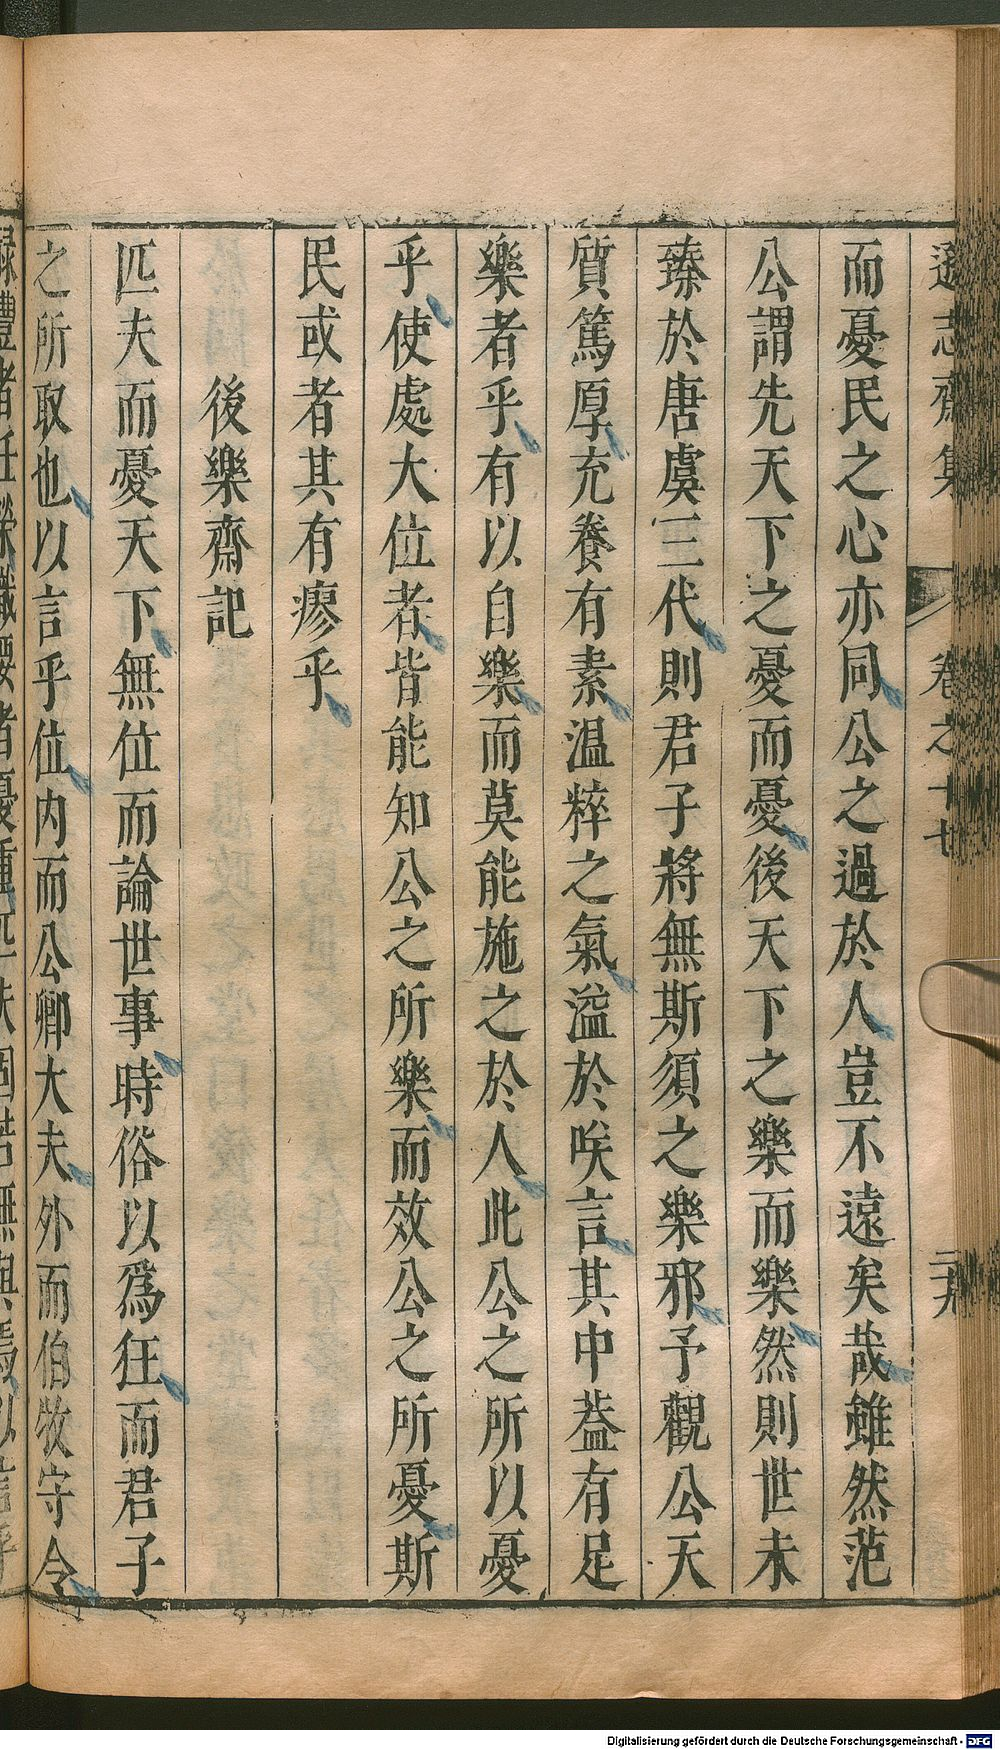 遜志齋集 卷之十七 二十九
而憂民之心亦同公之過於人豈不遠矣哉雖然范
公謂先天下之憂而憂後天下之樂而樂然則世未
臻於唐虞三代則君子將無斯須之樂邪予觀公天
質篤厚充養有素温粹之氣溢於咲言其中葢有足
樂者乎有以自樂而莫能施之於人此公之所以憂
乎使處大位者皆能知公之所樂而效公之所憂斯
民或者其有瘳乎
後樂齋記
匹夫而憂天下無位而論世事時俗以爲狂而君子
之所取也以言乎位内而公卿大夫外而伯牧守令
祿豊者任榮職要者憂重匹夫固若無與焉以言乎
Digitalisierung gefördert durch die Deutsche Forschungsgemeinschaft - DFG